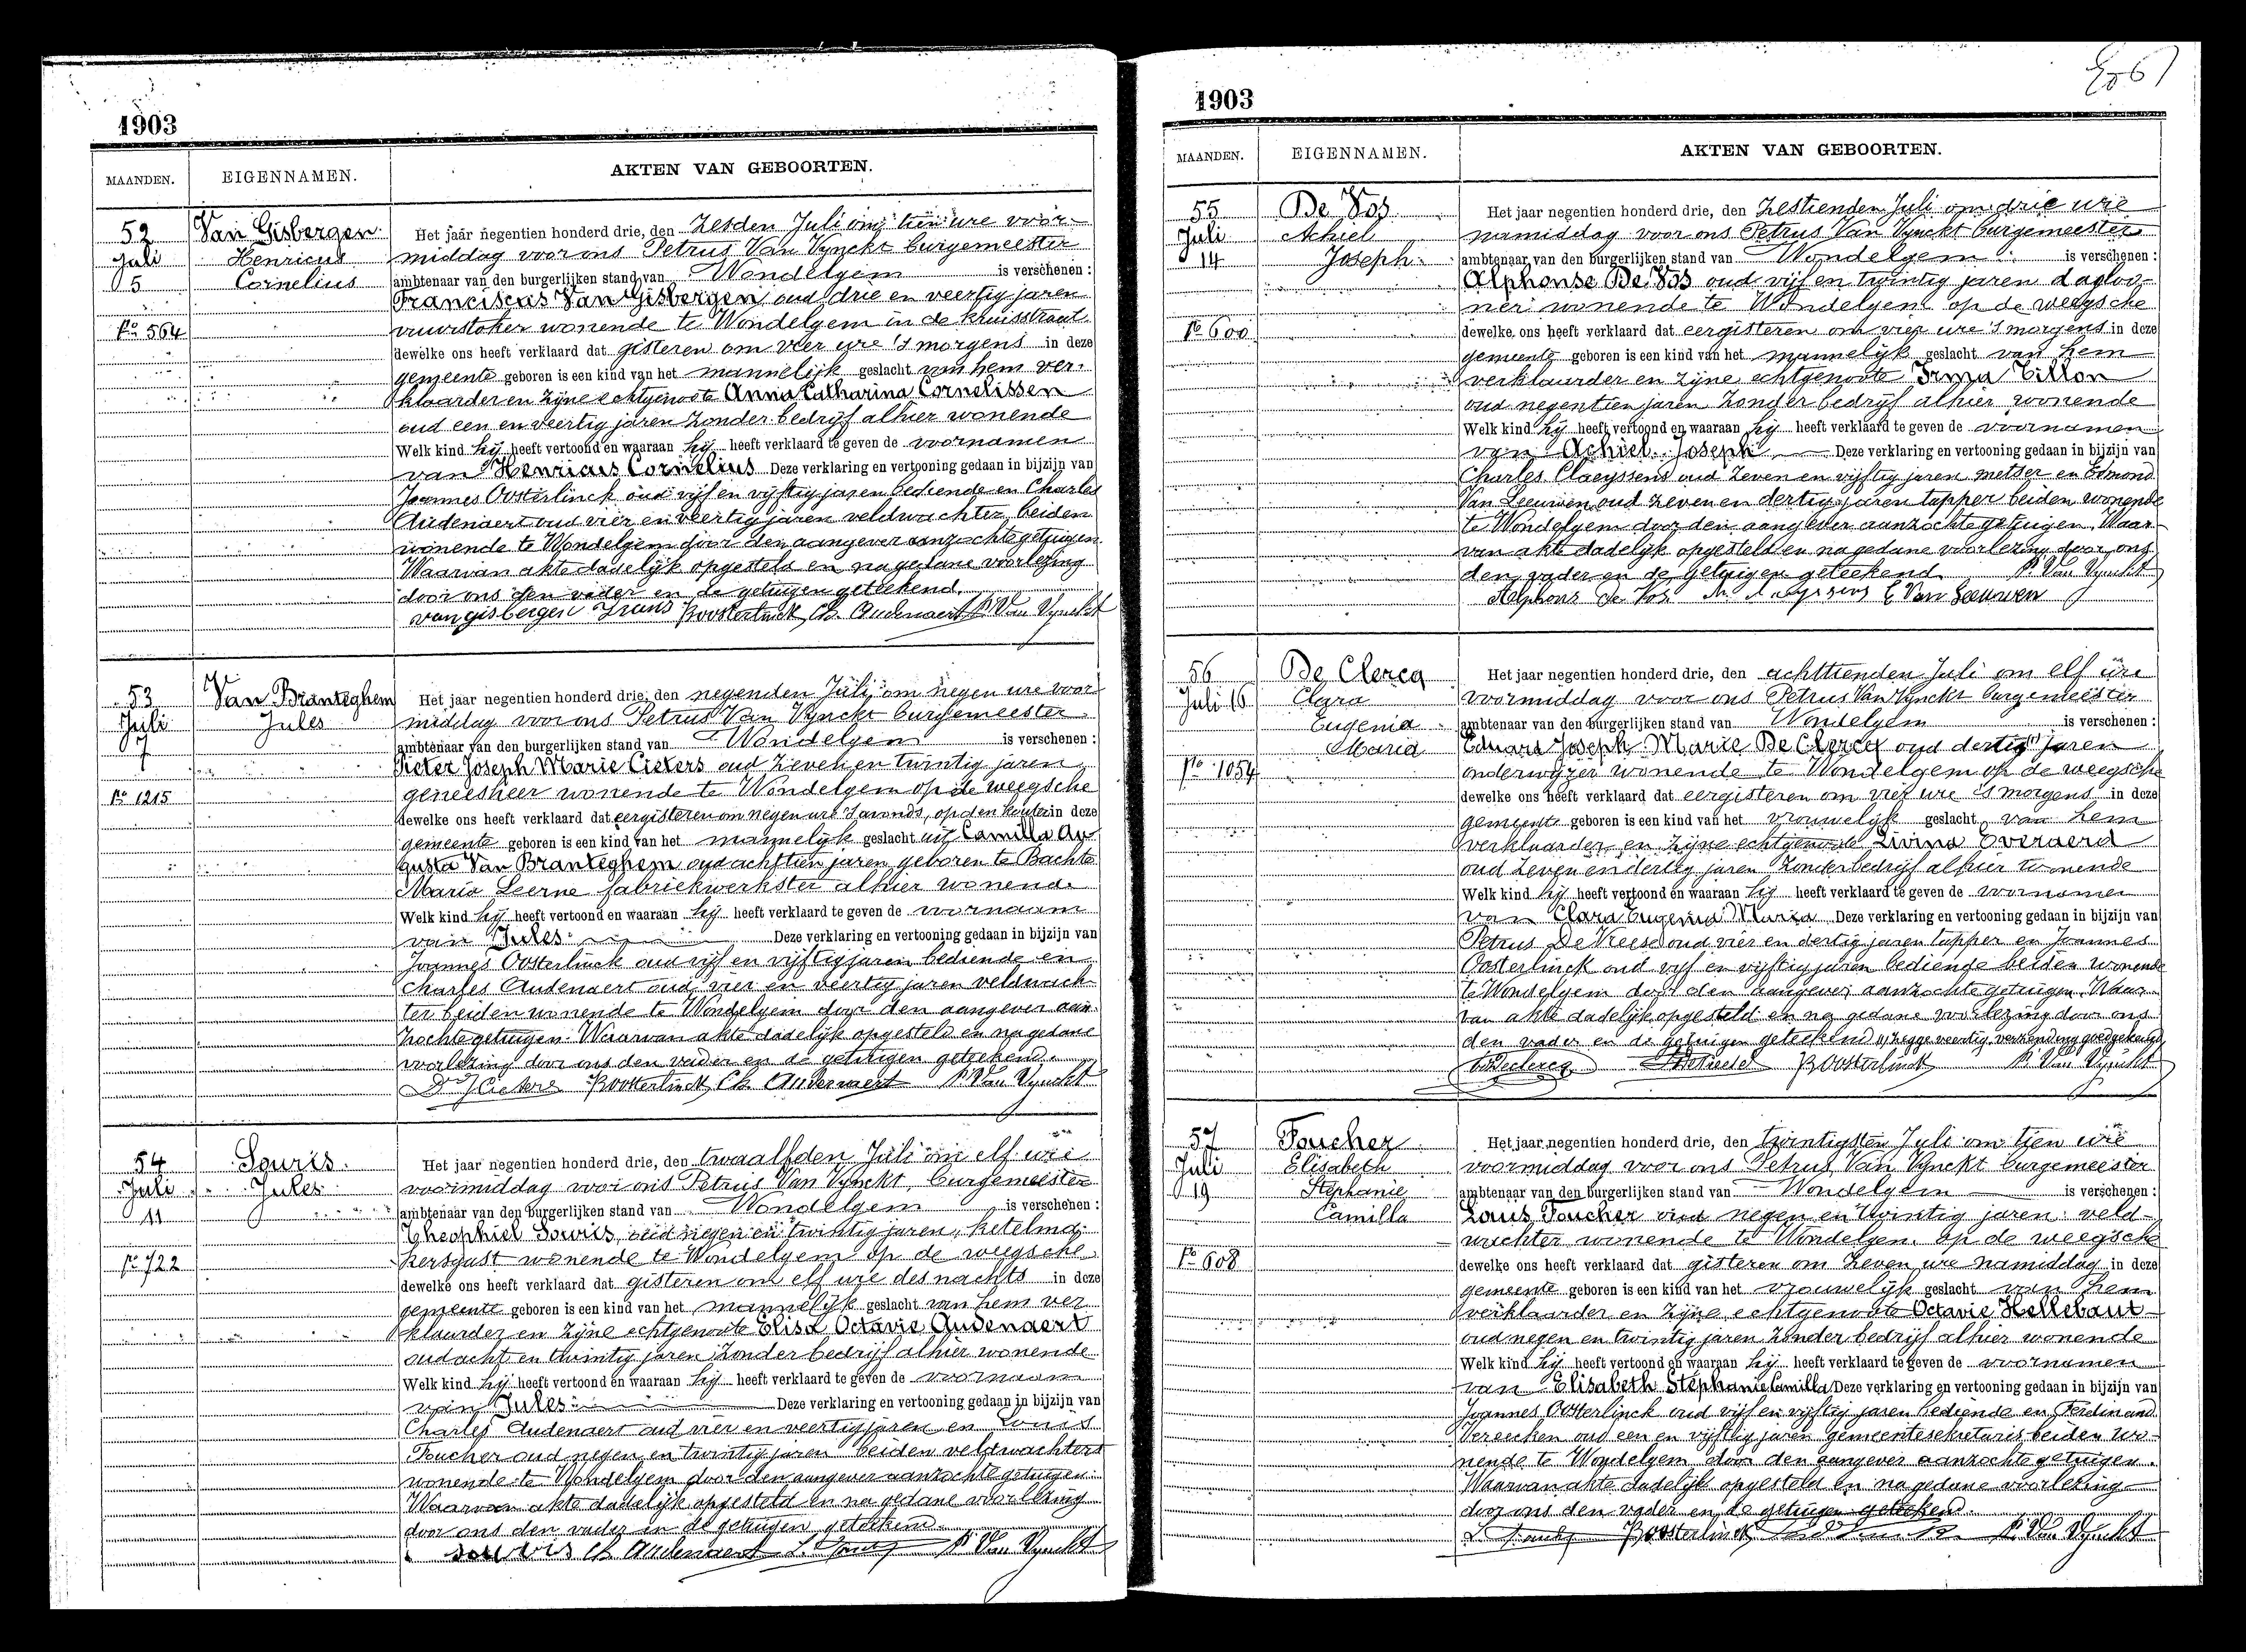 1903
MAANDEN. EIGENNAMEN. AKTEN VAN GEBOORTEN.
52
Juli
5
No 564
Van Gisbergen
Henricus
Cornelius
Het jaar negentien honderd drie, den zesden Juli om tien ure voor-
middag voor ons Petrus Van Vynckt burgemeester
ambtenaar van den burgerlijken stand van Wondelgem is verschenen :
Franciscus Van Gisbergen oud drie en veertig jaren
vuurstoker wonende te Wondelgem in de kruisstraat
dewelke ons heeft verklaard dat gisteren om vier ure 's morgens in deze
gemeente geboren is een kind van het mannelijk geslacht van hem ver-
klaarder en zijne echtgenoote Anna Catharina Cornelissen
oud een en veertig jaren zonder bedrijf alhier wonende
Welk kind hij heeft vertoond en waaraan hij heeft verklaard te geven de voornamen
van Henricus Cornelius Deze verklaring en vertooning gedaan in bijzijn van
Joannes Oosterlinck oud vijf en vijftig jaren bediende en Charles
Audenaert oud vier en veertig jaren veldwachter beiden
wonende te Wondelgem door den aangever aanzochte getuigen.
Waarvan akte dadelijk opgesteld en na gedane voorlezing
door ons den vader en de getuigen geteekend.
van gisbergen Frans JOosterlinck Ch. Audenaert P. Van Vynckt
53
Juli
7
No 1215
Van Branteghem
Jules
Het jaar negentien honderd drie, den negenden Juli om negen ure voor-
middag voor ons Petrus Van Vynckt burgemeester
ambtenaar van den burgerlijken stand van Wondelgem is verschenen :
Pieter Joseph Marie Cieters oud zeven en twintig jaren
geneesheer wonende te Wondelgem op de weegsche
dewelke ons heeft verklaard dat eergisteren om negen ure 's avonds, op den kouter in deze
gemeente geboren is een kind van het mannelijk geslacht uit Camilla Au-
gusta Van Branteghem oud achttien jaren geboren te Bachte
Maria Leerne fabriekwerkster alhier wonende
Welk kind hij heeft vertoond en waaraan hij heeft verklaard te geven de voornaam
van Jules Deze verklaring en vertooning gedaan in bijzijn van
Joannes Oosterlinck oud vijf en vijftig jaren bediende en
Charles Audenaert oud vier en veertig jaren veldwach-
ter beiden wonende te Wondelgem door den aangever aan-
zochte getuigen. Waarvan akte dadelijk opgesteld en na gedane
voorlezing door ons den vader en de getuigen geteekend.
Dr J Cieters JOosterlinck Ch Audenaert P. Van Vynckt
54
Juli
11
No 722
Souris
Jules
Het jaar negentien honderd drie, den twaalfden Juli om elf ure
voormiddag voor ons Petrus Van Vynckt, burgemeester
ambtenaar van den burgerlijken stand van Wondelgem is verschenen :
Theophiel Souris, oud negen en twintig jaren, ketelma-
kersgast wonende te Wondelgem op de weegsche
dewelke ons heeft verklaard dat gisteren om elf ure des nachts in deze
gemeente geboren is een kind van het mannelijk geslacht van hem ver-
klaarder en zijne echtgenoote Elisa Octavie Audenaert
oud acht en twintig jaren zonder bedrijf alhier wonende
Welk kind hij heeft vertoond en waaraan hij heeft verklaard te geven de voornaam
van Jules Deze verklaring en vertooning gedaan in bijzijn van
Charles Audenaert oud vier en veertig jaren en Louis
Foucher oud negen en twintig jaren beiden veldwachters
wonende te Wondelgem door den aangever aanzochte getuigen.
Waarvan akte dadelijk opgesteld en na gedane voorlezing
door ons den vader en de getuigen geteekend.
souris Ch Audenaert P. Van Vynckt
1903
MAANDEN. EIGENNAMEN. AKTEN VAN GEBOORTEN.
55
Juli
14
No 600
De Vos
Achiel
Joseph
Het jaar negentien honderd drie, den zestienden Juli om drie ure
namiddag voor ons Petrus Van Vynckt burgemeester
ambtenaar van den burgerlijken stand van Wondelgem is verschenen :
Alphonse De Vos oud vijf en twintig jaren dagloo-
ner wonende te Wondelgem op de weegsche
dewelke ons heeft verklaard dat eergisteren om vier ure 's morgens in deze
gemeente geboren is een kind van het mannelijk geslacht van hem
verklaarder en zijne echtgenoote Irma Tillon
oud negentien jaren zonder bedrijf alhier wonende
Welk kind hij heeft vertoond en waaraan hij heeft verklaard te geven de voornamen
van Achiel Joseph Deze verklaring en vertooning gedaan in bijzijn van
Charles Claeyssens oud zeven en vijftig jaren metser en Edmond
Van Leeuwen oud zeven en dertig jaren tapper beiden wonende
te Wondelgem door den aangever aanzochte getuigen. Waar-
van akte dadelijk opgesteld en na gedane voorlezing door ons
den vader en de getuigen geteekend P. Van Vynckt
Alphons de Vos E Van Leeuwen
56
Juli 16
No 1054
De Clercq
Clara
Eugenia
Maria
Het jaar negentien honderd drie, den achttienden Juli om elf ure
voormiddag voor ons Petrus Van Vynckt burgemeester
ambtenaar van den burgerlijken stand van Wondelgem is verschenen :
Eduard Joseph Marie De Clercq oud dertig jaren
onderwijzer wonende te Wondelgem op de weegsche
dewelke ons heeft verklaard dat eergisteren om vier ure 's morgens in deze
gemeente geboren is een kind van het vrouwelijk geslacht van hem
verklaarder en zijne echtgenoote Livina Everaerd
oud zeven en dertig jaren zonder bedrijf alhier wonende
Welk kind hij heeft vertoond en waaraan hij heeft verklaard te geven de voornamen
van Clara Eugenia Maria Deze verklaring en vertooning gedaan in bijzijn van
Petrus De Vreese oud vier en dertig jaren tapper en Joannes
Oosterlinck oud vijf en vijftig jaren bediende beiden wonende
te Wondelgem door den aangever aanzochte getuigen. Waar-
van akte dadelijk opgesteld en na gedane voorlezing door ons
den vader en de getuigen geteekend 1) zegge veertig, verzending goedgekeurd
EdDeclercq JOosterlinck P. Van Vynckt
57
Juli
19
No 608
Foucher
Elisabeth
Stephanie
Camilla
Het jaar negentien honderd drie, den twintigsten Juli om tien ure
voormiddag voor ons Petrus Van Vynckt burgemeester
ambtenaar van den burgerlijken stand van Wondelgem is verschenen :
Louis Foucher oud negen en twintig jaren veld-
wachter wonende te Wondelgem op de weegsche
dewelke ons heeft verklaard dat gisteren om zeven ure namiddag in deze
gemeente geboren is een kind van het vrouwelijk geslacht van hem
verklaarder en zijne echtgenoote Octavie Hellebaut
oud negen en twintig jaren zonder bedrijf alhier wonende
Welk kind hij heeft vertoond en waaraan hij heeft verklaard te geven de voornamen
van Elisabeth Stephanie Camilla Deze verklaring en vertooning gedaan in bijzijn van
Joannes Oosterlinck oud vijf en vijftig jaren bediende en Ferdinand
Vereecken oud een en vijftig jaren gemeentesekretaris beiden wo-
nende te Wondelgem door den aangever aanzochte getuigen.
Waarvan akte dadelijk opgesteld en na gedane voorlezing
door ons den vader en de getuigen geteekend.
JOosterlinck P. Van Vynckt